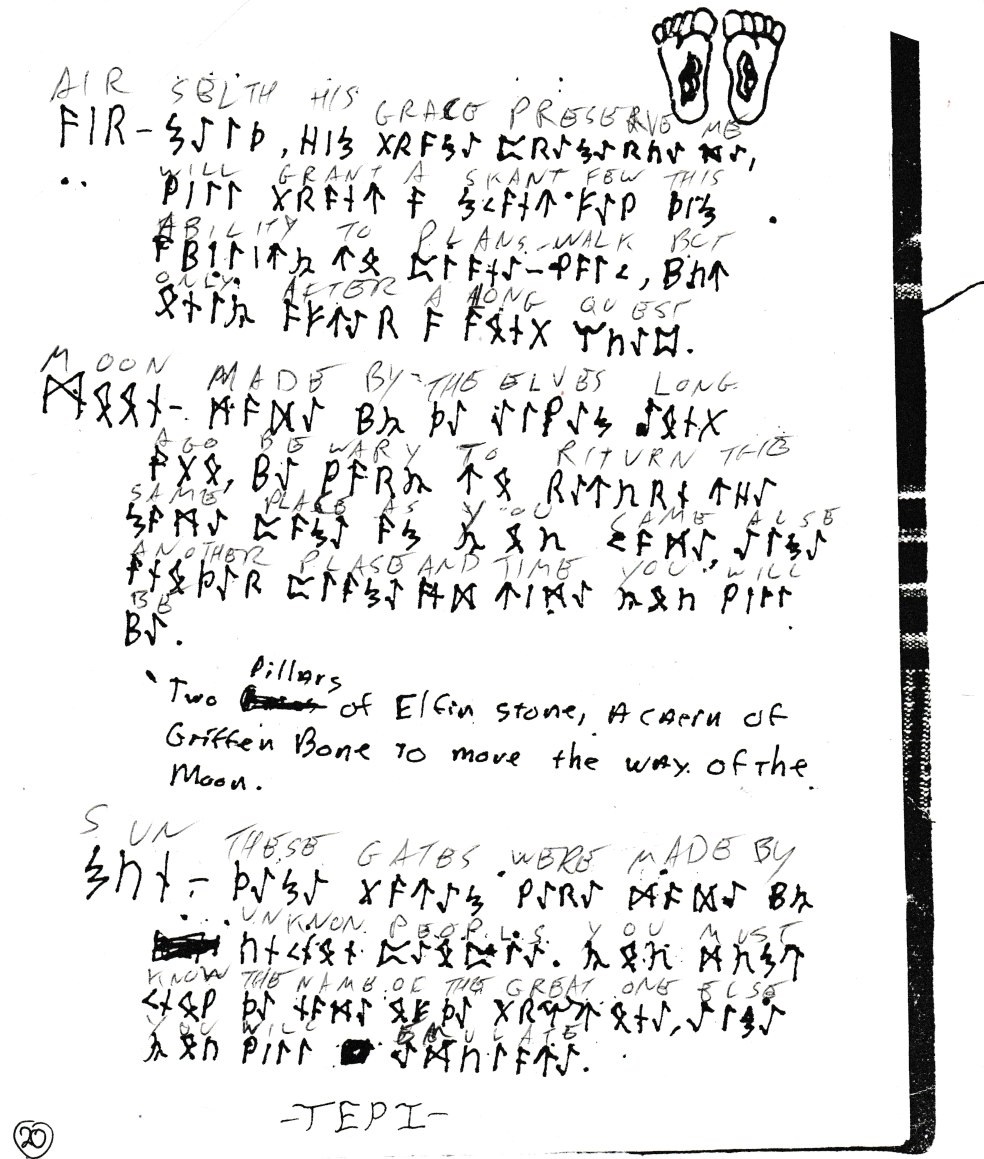 AIR SELTH HIS GRACE PRESERVE ME
ᚨᛁᚱ – ᛋᛇᛚᚦ, ᚺᛁᛋ ᚷᚱᚨᛋᛇ ᛈᚱᛇᛋᛇᚱᚢᛇ ᛗᛇ,
WILL GRANT A SKANT FEW THIS
ᚹᛁᛚᛚ ᚷᚱᚨᚾᛏ ᚨ ᛋᚲᚨᚾᛏ ᚠᛇᚹ ᚦᛁᛋ
ABILITY TO PLANS-WALK BUT
ᚨᛒᛁᛚᛁᛏᚣ ᛏᛟ ᛈᛚᚨᚾᛇ-ᚹᚨᛚᚲ, ᛒᚢᛏ
ONLY AFTER A LONG QUEST
ᛟᚾᛚᚣ ᚨᚠᛏᛇᚱ ᚨ ᛚᛟᚾᚷ
MOON MADE BY THE ELVES LONG
ᛗᛟᛟᚾ – ᛗᚨᛞᛇ ᛒᚣ ᚦᛇ ᛇᛚᚹᛇᛋ ᛚᛟᚾᚷ
AGO BE WARY TO RITURN THE
ᚨᚷᛟ, ᛒᛇ ᚹᚨᚱᚣ ᛏᛟ ᚱᛇᛏᚢᚱᚾ ᛏᚺᛇ
SAME PLACE AS YOU CAME ALSE
ᛋᚨᛗᛇ ᛈᚨᛋᛇ ᚨᛋ ᚣᛟᚢ ᚲᚨᛗᛇ, ᛇᛚᛋᛇ
ANOTHER PLASE AND TIME YOU WILL
ᚨᚾᛟᚦᛇᚱ ᛈᛚᚨᛋᛇ ᚨᚾᛞ ᛏᛁᛗᛇ ᚣᛟᚢ ᚹᛁᛚᛚ
BE
ᛒᛇ.
Two Pillars of Elfin stone, A cAern of
Griffen Bone to move the wAy of the
Moon.
SUN THESE GATES WERE MADE BY
ᛋᚢᚾ – ᚦᛇᛋᛇ ᚷᚨᛏᛇᛋ ᚹᛇᚱᛇ ᛗᚨᛞᛇ ᛒᚣ
UNKNON PEOPLS YOU MUST
ᚢᚾᚲᚾᛟᚾ ᛈᛇᛟᛈᛚᛇ. ᚣᛟᚢ ᛗᚢᛋᛏ
KNOW THE NAME OF THE GREAT ONE ELSE
ᚲᚾᛟᚹ ᚦᛇ ᚾᚨᛗᛇ ᛟᚠ ᚦᛇ ᚷᚱᛇᚨᛏ ᛟᚾᛇ, ᛇᛚᛋᛇ
YOU WILL EMULATE
ᚣᛟᚢ ᚹᛁᛚᛚ ᛇᛗᚢᛚᚨᛏᛇ.
-TEPI-
20